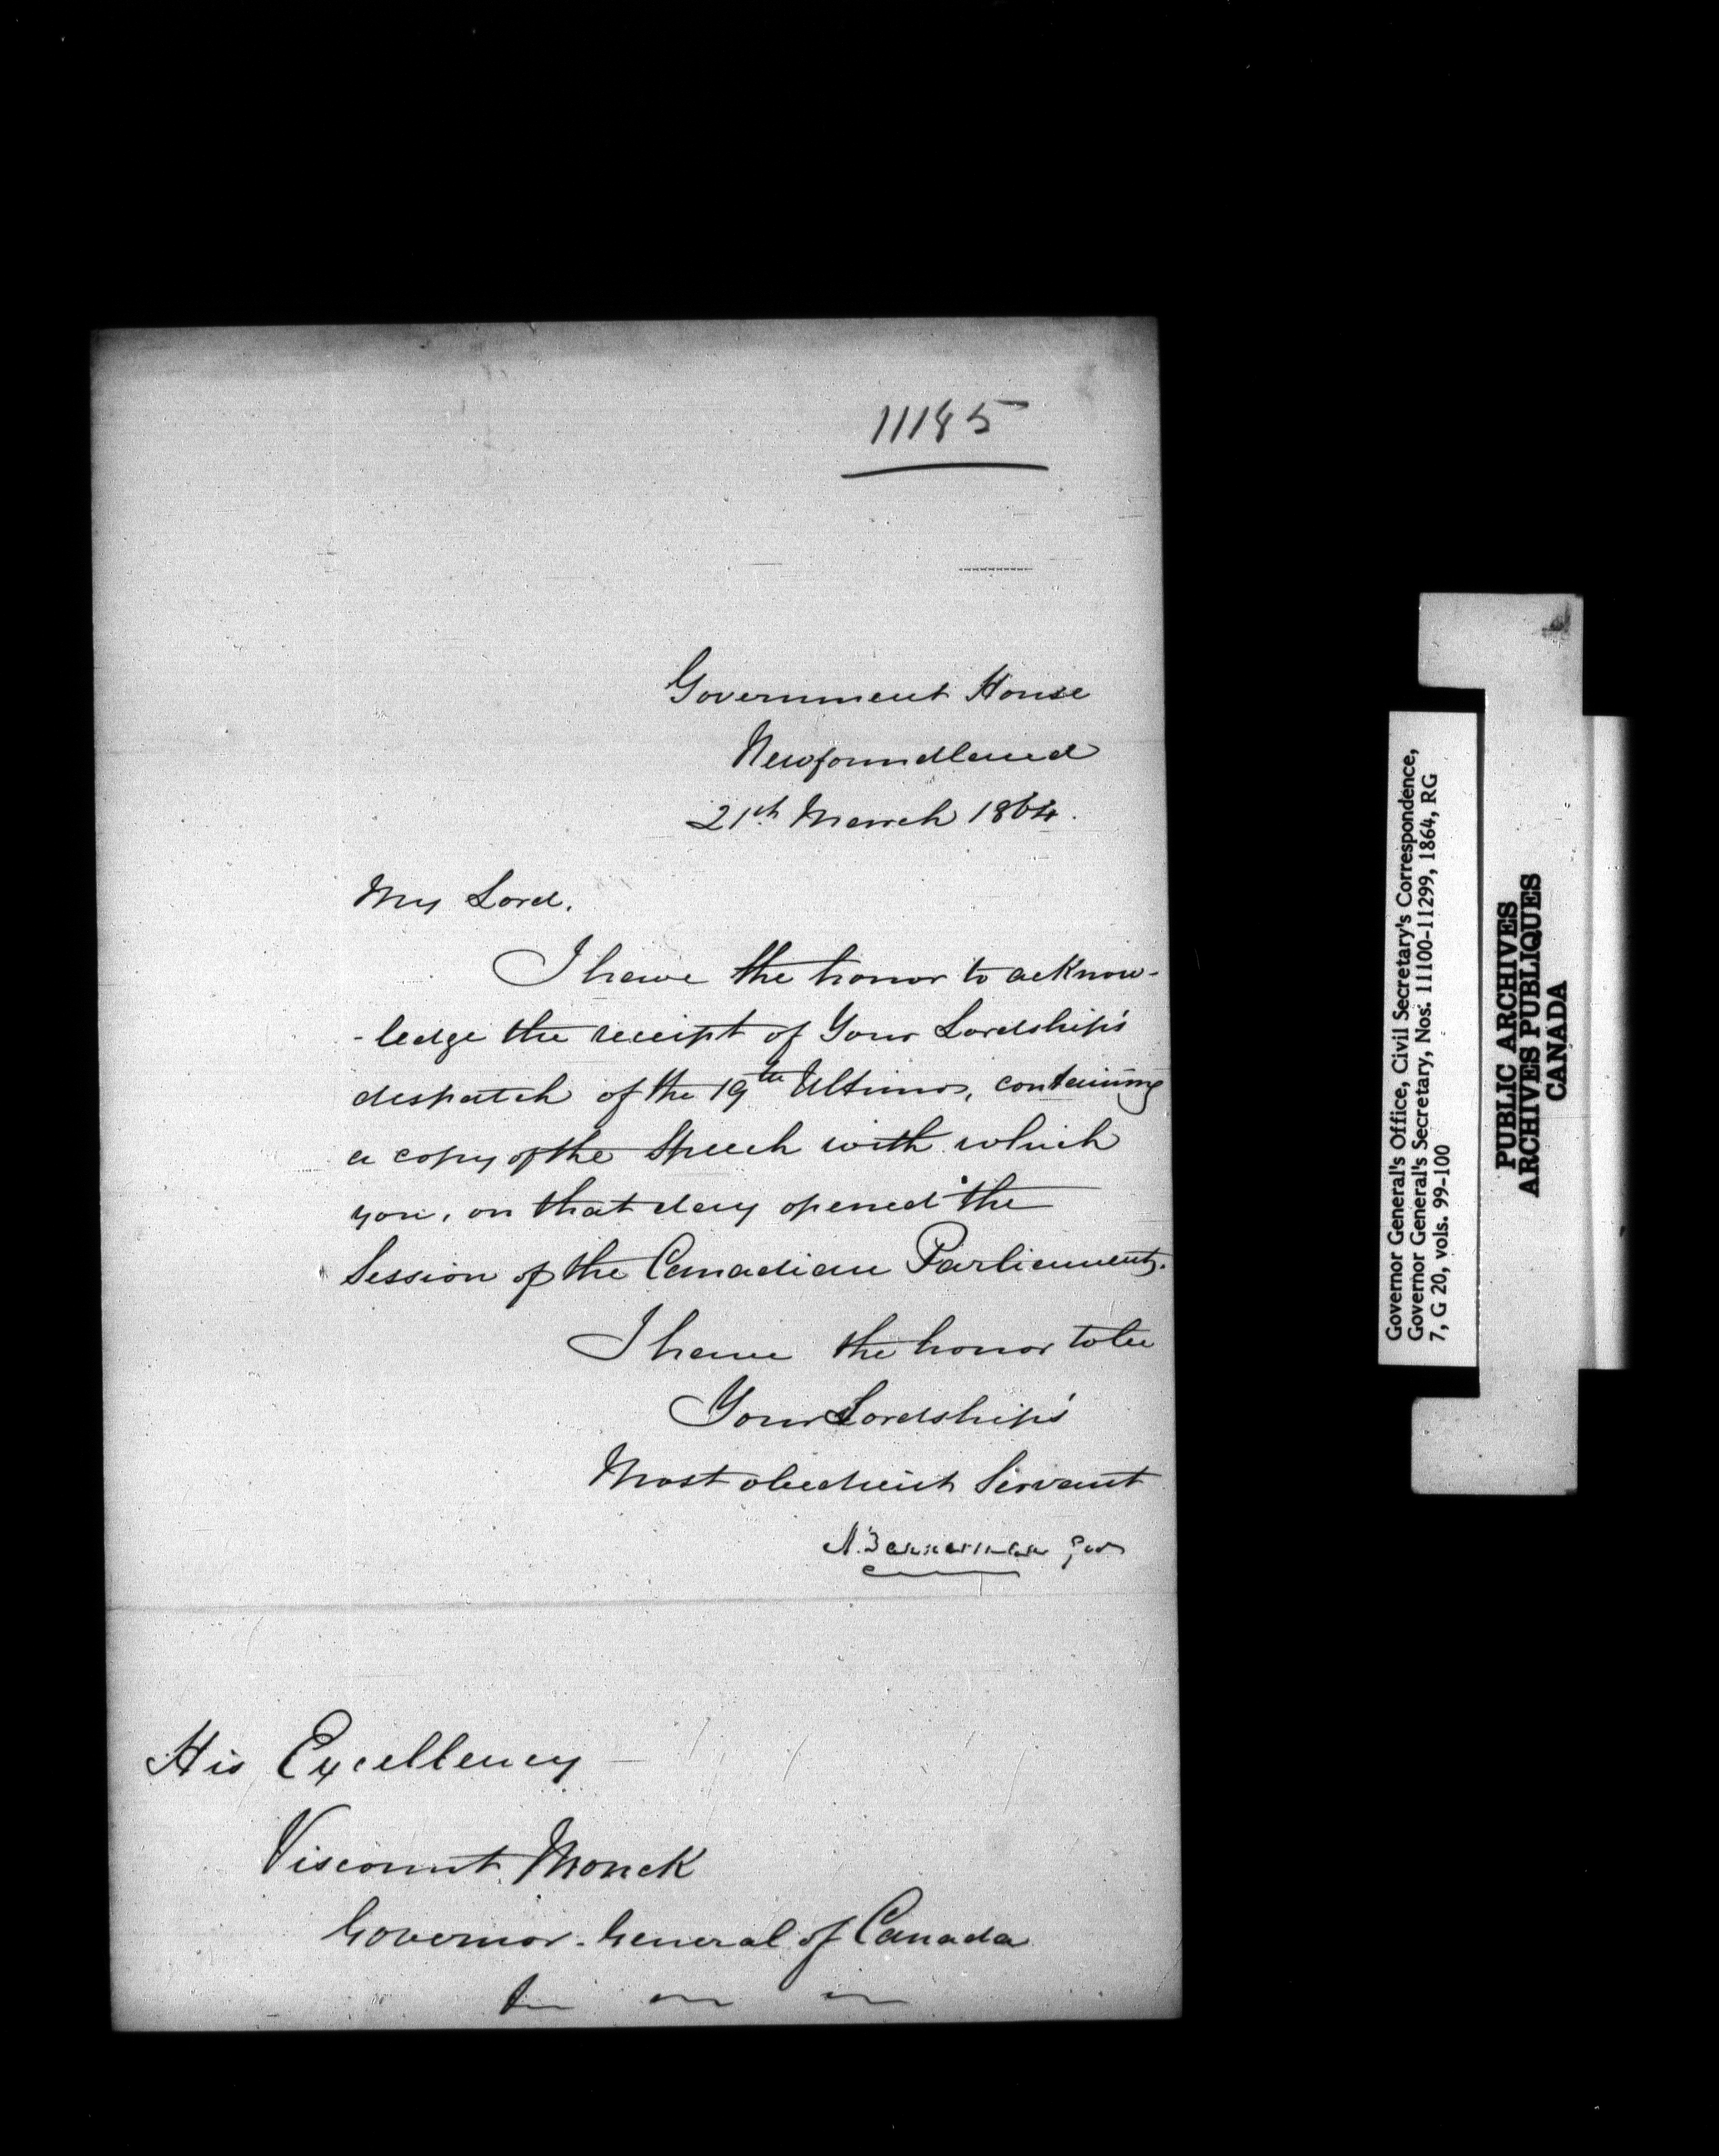 11185
Government House
Newfoundland
21st March 1864.
My Lord,
I have the honor to acknow-
-ledge the receipt of Your Lordship's
despatch of the 19th Ultimo, containing
a copy of the Speech with which
you, on that day opened the
Session of the Canadian Parliament.
I have the honor to be
Your Lordship's
Most obedient Servant
A. Bannerman Gov
His Excellency
Viscount Monck
Governor-General of Canada
Governor General's Office, Civil Secretary's Correspondence,
Governor General's Secretary, Nos. 11100-11299, 1864, RG
7, G 20, vols. 99-100
PUBLIC ARCHIVES
ARCHIVES PUBLIQUES
CANADA